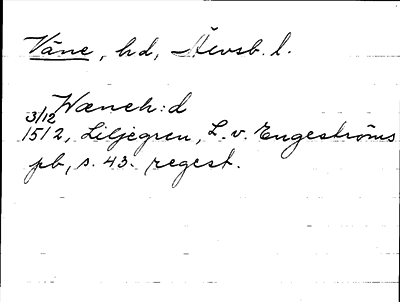 Väne, hd, Älvsb. l.
Wæneh:d
3/12
1512, Liljegren, L. v. Engeströms
pb, s. 43. regest.